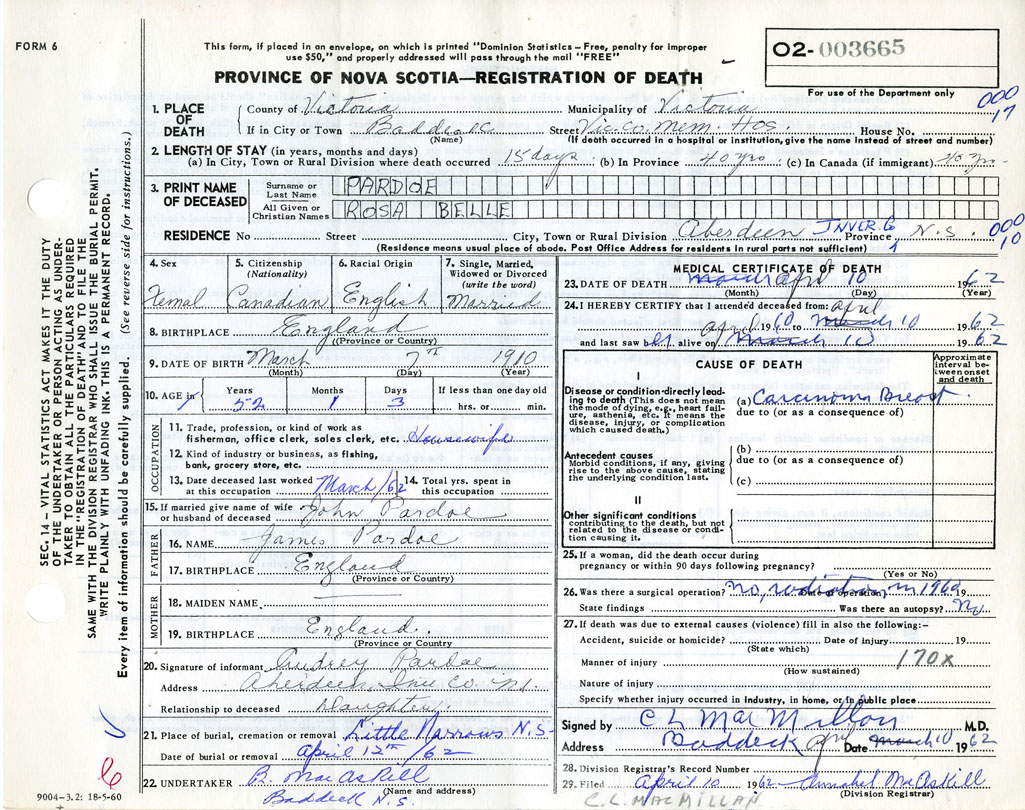 FORM 6
This form, if placed in an envelope, on which is printed "Dominion Statistics - Free, penalty for improper
use $50," and properly addressed will pass through the mail "FREE"
PROVINCE OF NOVA SCOTIA—REGISTRATION OF DEATH
O2-003665
For use of the Department only
000
17
1. PLACE OF DEATH County of Victoria Municipality of Victoria
If in City or Town Baddeck (Name) Street Vic. Co. Mem. Hos. House No.
(If death occurred in a hospital or institution, give the name instead of street and number)
2. LENGTH OF STAY (in years, months and days)
(a) In City, Town or Rural Division where death occurred 15 days (b) In Province 40 yrs (c) In Canada (if immigrant) 40 yrs
3. PRINT NAME OF DECEASED Surname or Last Name PARDOE
All Given or Christian Names ROSA BELLE
RESIDENCE No Street City, Town or Rural Division Aberdeen INVER. Co Province N.S. 000 10
(Residence means usual place of abode. Post Office Address for residents in rural parts not sufficient) 1
4. Sex Femal
5. Citizenship (Nationality) Canadian
6. Racial Origin English
7. Single, Married, Widowed or Divorced (write the word) Married
8. BIRTHPLACE England
(Province or Country)
9. DATE OF BIRTH March 7th 1910
(Month) (Day) (Year)
10. AGE in Years 52 Months 1 Days 3 If less than one day old hrs. or min.
1
OCCUPATION
11. Trade, profession, or kind of work as
fisherman, office clerk, sales clerk, etc. Housewife
12. Kind of industry or business, as fishing,
bank, grocery store, etc.
13. Date deceased last worked at this occupation March/62 14. Total yrs. spent in this occupation
15. If married give name of wife or husband of deceased John Pardoe
FATHER
16. NAME James Pardoe
17. BIRTHPLACE England
(Province or Country)
MOTHER
18. MAIDEN NAME
19. BIRTHPLACE England.
(Province or Country)
20. Signature of informant Audrey Pardoe
Address Aberdeen, Inv Co N.S.
Relationship to deceased Daughter
21. Place of burial, cremation or removal Little Narrows N.S.
Date of burial or removal April 12th /62
22. UNDERTAKER B. MacAskill
(Name and address)
Baddeck N.S.
9004-3.2: 18-5-60
MEDICAL CERTIFICATE OF DEATH
23. DATE OF DEATH March april 10 1962
(Month) (Day) (Year)
24. I HEREBY CERTIFY that I attended deceased from: april
April 1960 to March 10 1962
and last saw her alive on March 10 1962
CAUSE OF DEATH
Approximate interval between onset and death
I
Disease or condition directly leading to death (This does not mean the mode of dying, e.g., heart failure, asthenia, etc. It means the disease, injury, or complication which caused death.)
(a) Carcinoma Breast
due to (or as a consequence of)
Antecedent causes
Morbid conditions, if any, giving rise to the above cause, stating the underlying condition last.
(b)
due to (or as a consequence of)
(c)
II
Other significant conditions
contributing to the death, but not related to the disease or condition causing it.
25. If a woman, did the death occur during
pregnancy or within 90 days following pregnancy?
(Yes or No)
26. Was there a surgical operation? No, radiation in 1960
State findings Was there an autopsy? No
27. If death was due to external causes (violence) fill in also the following:-
Accident, suicide or homicide? Date of injury 19
(State which)
Manner of injury 170x
(How sustained)
Nature of injury
Specify whether injury occurred in industry, in home, or in public place
Signed by C L MacMillan M.D.
Address Baddeck Date March apl 10 1962
28. Division Registrar's Record Number
29. Filed April 10 1962 Annabel MacAskill
(Division Registrar)
C. L. MACMILLAN
SEC. 14 - VITAL STATISTICS ACT MAKES IT THE DUTY
OF THE UNDERTAKER OR PERSON ACTING AS UNDER-
TAKER TO OBTAIN ALL THE PARTICULARS REQUIRED
IN THE "REGISTRATION OF DEATH" AND TO FILE THE
SAME WITH THE DIVISION REGISTRAR WHO SHALL ISSUE THE BURIAL PERMIT.
WRITE PLAINLY WITH UNFADING INK. THIS IS A PERMANENT RECORD.
Every item of information should be carefully supplied. (See reverse side for instructions.)